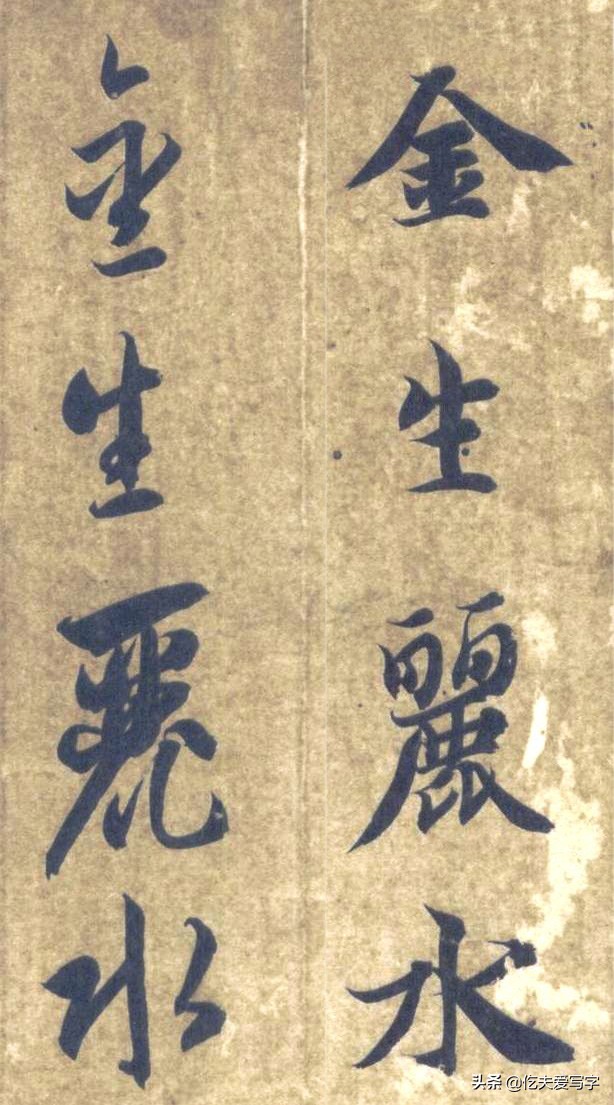 金生麗水
金生麗水
头条 @仡夫爱写字